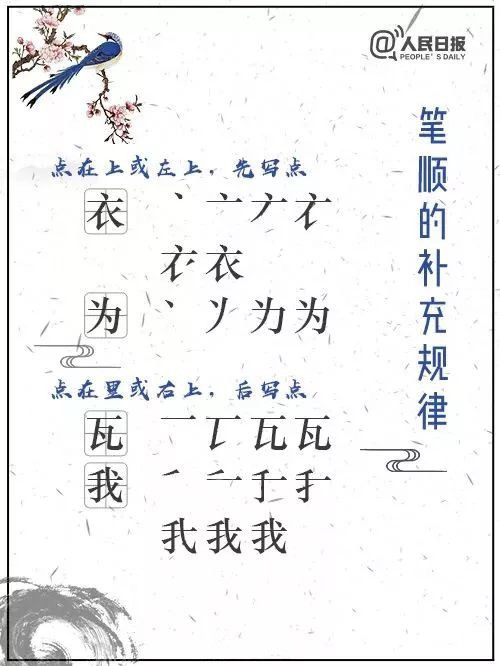 @人民日报
PEOPLE'S DAILY
笔顺的补充规律
点在上或左上，先写点
衣 丶 亠
衣
为 丶 为 为
点在里或右上，后写点
瓦 一 瓦 瓦
我 丿 我 我